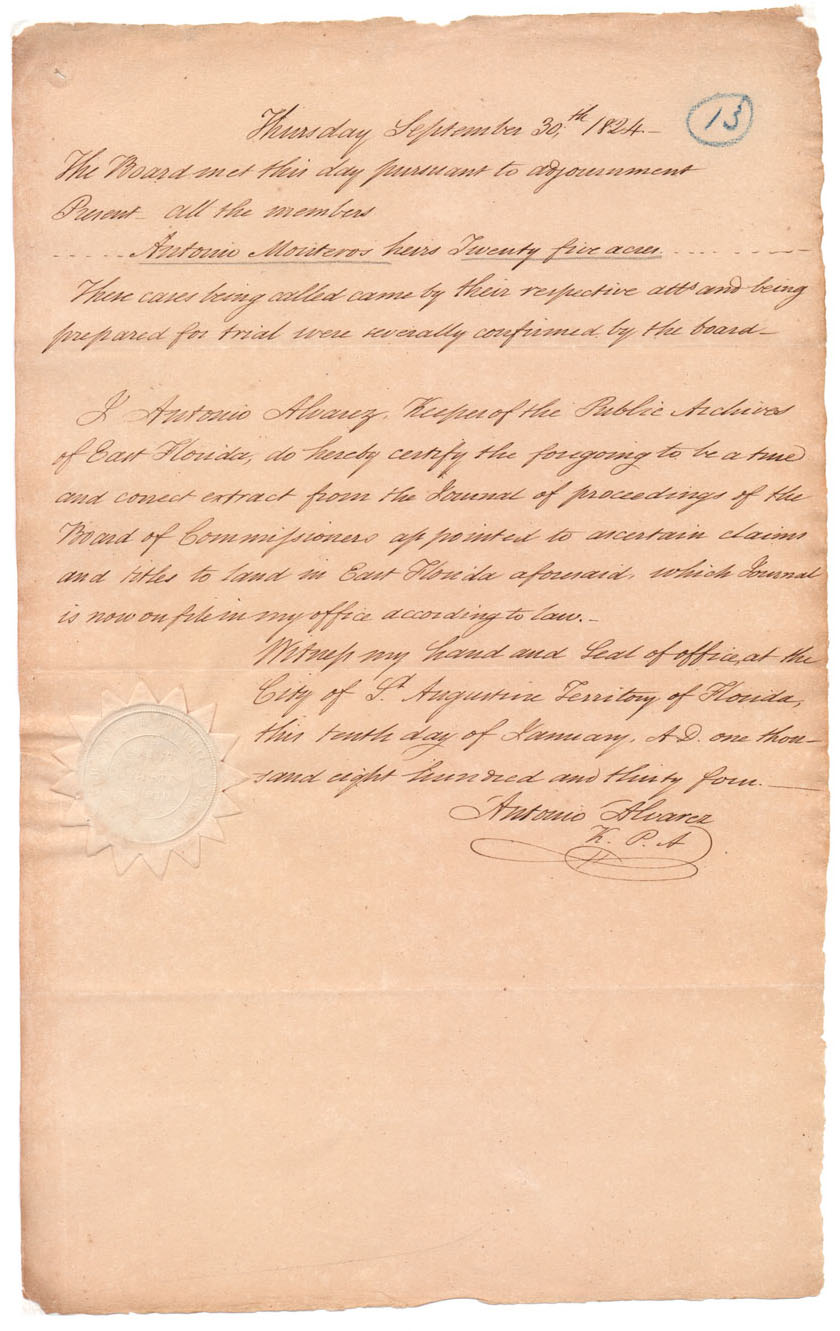 13
Thursday September 30,th 1824–
The Board met this day pursuant to adjournment
Present– all the members
..... Antonio Monteros heirs Twenty five acres .........
These cases being called came by their respective atts and being
prepared for trial were severally confirmed by the board–
I Antonio Alvarez, Keeper of the Public Archives
of East Florida, do hereby certify the foregoing to be a true
and correct extract from the Journal of proceedings of the
Board of Commissioners appointed to ascertain claims
and titles to land in East Florida aforesaid, which Journal
is now on file in my office according to law.–
Witness my hand and Seal of office, at the
City of St. Augustine Territory of Florida,
this tenth day of January, A.D. one thou-
sand eight hundred and thirty four.–
Antonio Alvarez
K. P. A